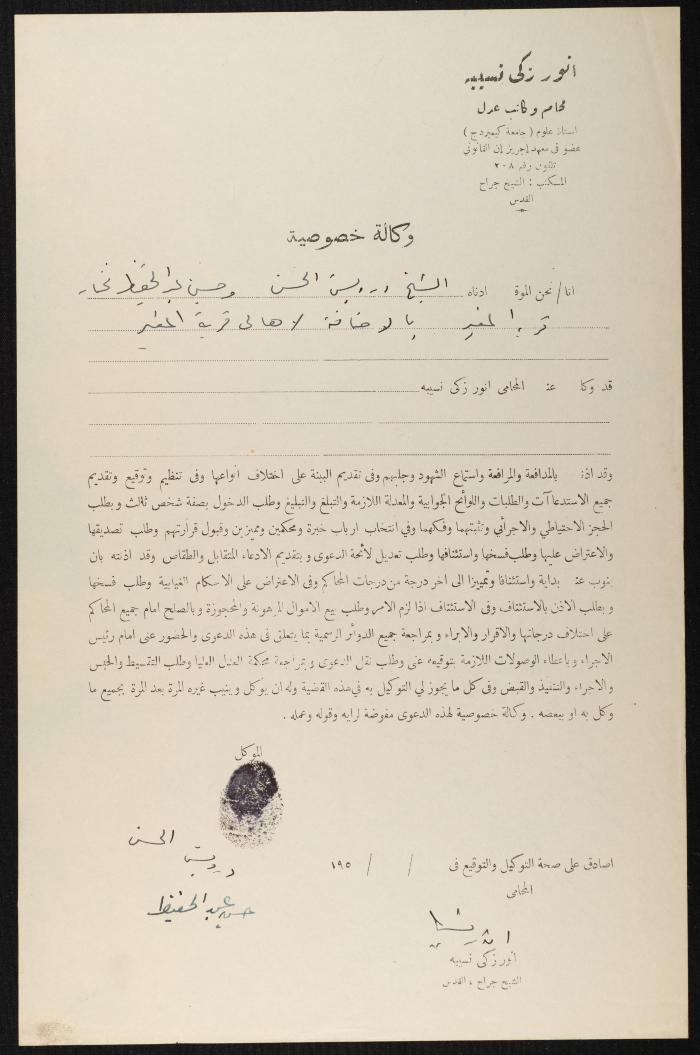 انور زكي نسيبه
محام وكاتب عدل
استاذ علوم ( جامعة كيمبردج )
عضو في معهد إجريز إن القانوني
تلفون رقم ٢٠٨
المكتب : الشيخ جراح
القدس
وكالة خصوصية
انا/ نحن الموة ادناه الشيخ درويش الحسن وحسين عبد الحفيظ مختار
قرية المغير بالاضافة لاهالي قرية المغير
قد وكا عنـ المحامى انور زكى نسيبه
وقد اذنـ بالمدافعة والمرافعة واستماع الشهود وجلبهم وفى تقديم البينة على اختلاف انواعها وفى تنظيم وتوقيع وتقديم
جميع الاستدعاآت والطلبات واللوائح الجوابية والمعدلة اللازمة والتبلغ والتبليغ وطلب الدخول بصفة شخص ثالث وبطلب
الحجز الاحتياطي والاجرائي وتثبيتهما وفكهما وفي انتخاب ارباب خبرة ومحكمين ومميزين وقبول قراراتهم وطلب تصديقها
والاعتراض عليها وطلب فسخها واستئنافها وطلب تعديل لائحة الدعوى وبتقديم الادعاء المتقابل والطقاص وقد اذنته بان
ينوب عنـ بداية واستئنافا وتمييزا الى اخر درجة من درجات المحاكم وفى الاعتراض على الاحكام الغيابية وطلب فسخها
وبطلب الاذن بالاستئناف وفى الاستئناف اذا لزم الامر وطلب بيع الاموال المرهونة والمحجوزة وبالصلح امام جميع المحاكم
على اختلاف درجاتها والاقرار والابراء وبمراجعة جميع الدوائر الرسمية بما يتعلق فى هذه الدعوى والحضور عنى امام رئيس
الاجراء وباعطاء الوصولات اللازمة بتوقيعه عنى وطلب نقل الدعوى وبمراجعة محكمة العدل العليا وطلب التقسيط والحبس
والاجراء والتنفيذ والقبض وفى كل ما يجوز لي التوكيل به في هذه القضية وله ان يوكل وينيب غيره المرة بعد المرة بجميع ما
وكل به او ببعضه . وكالة خصوصية لهذه الدعوى مفوضة لرايه وقوله وعمله .
الموكل
درويش الحسن
حسين عبد الحفيظ
اصادق على صحة التوكيل والتوقيع فى / / ١٩٥
المحامى
انور زكى نسيبه
الشيخ جراح ، القدس